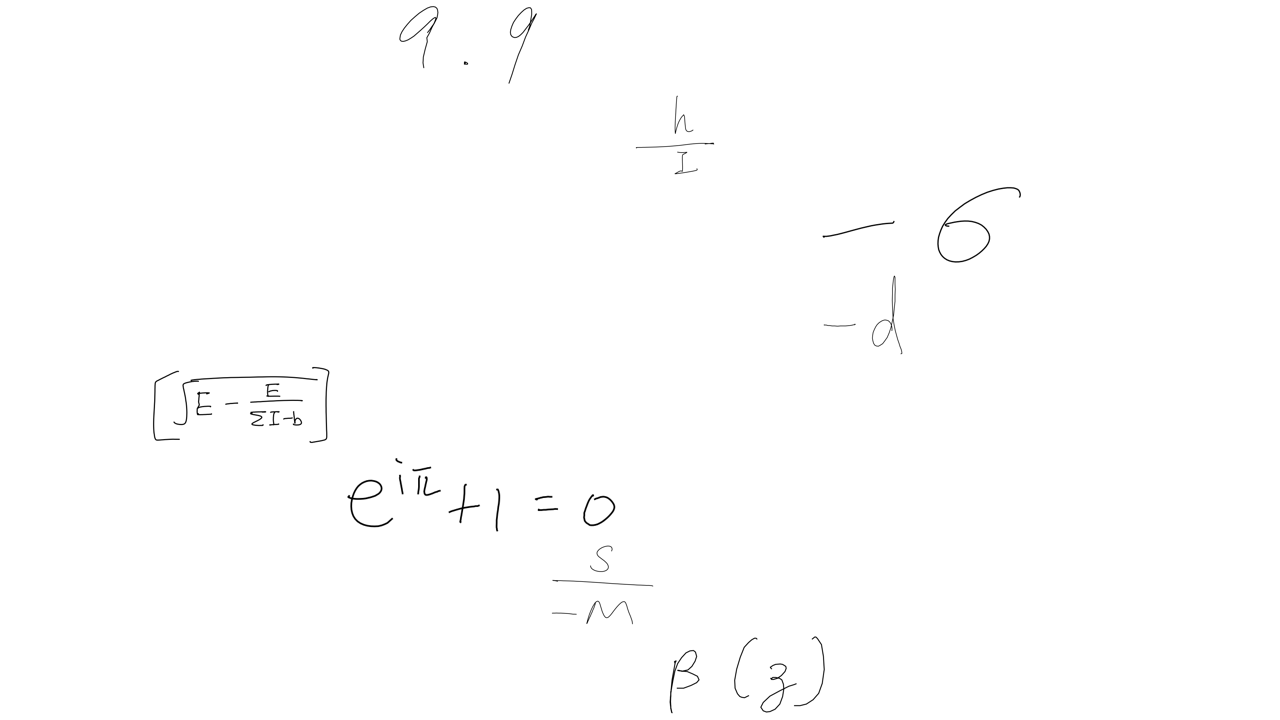 9.9
h/I
-6
-d
[√(E - E/(ΣI-b))]
e^{iπ}+1=0
s/(-M)
β(z)